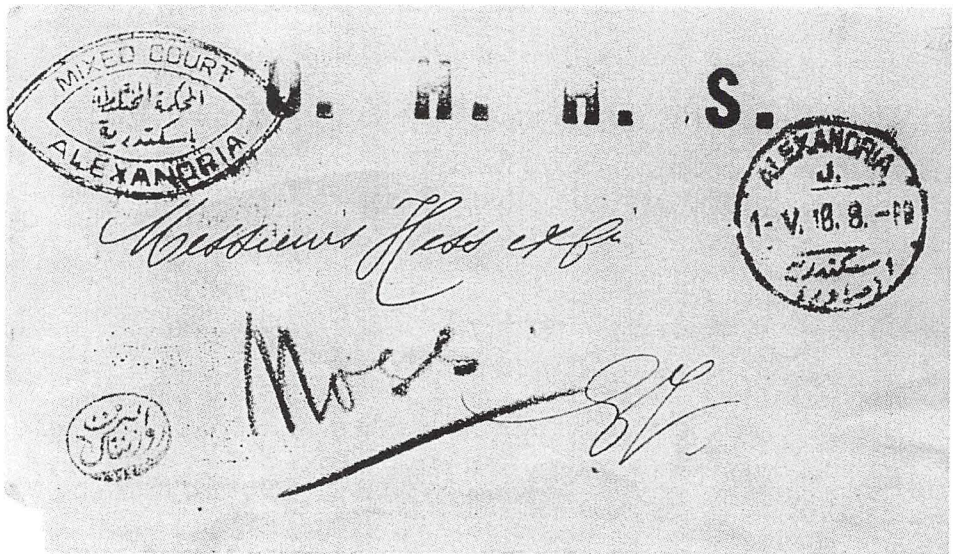 MIXED COURT
المحكمة المختلطة
بإسكندرية
ALEXANDRIA
O. H. H. S.
ALEXANDRIA
J.
1-V. 18. 8.
إسكندرية
Messieurs Hess
Moss